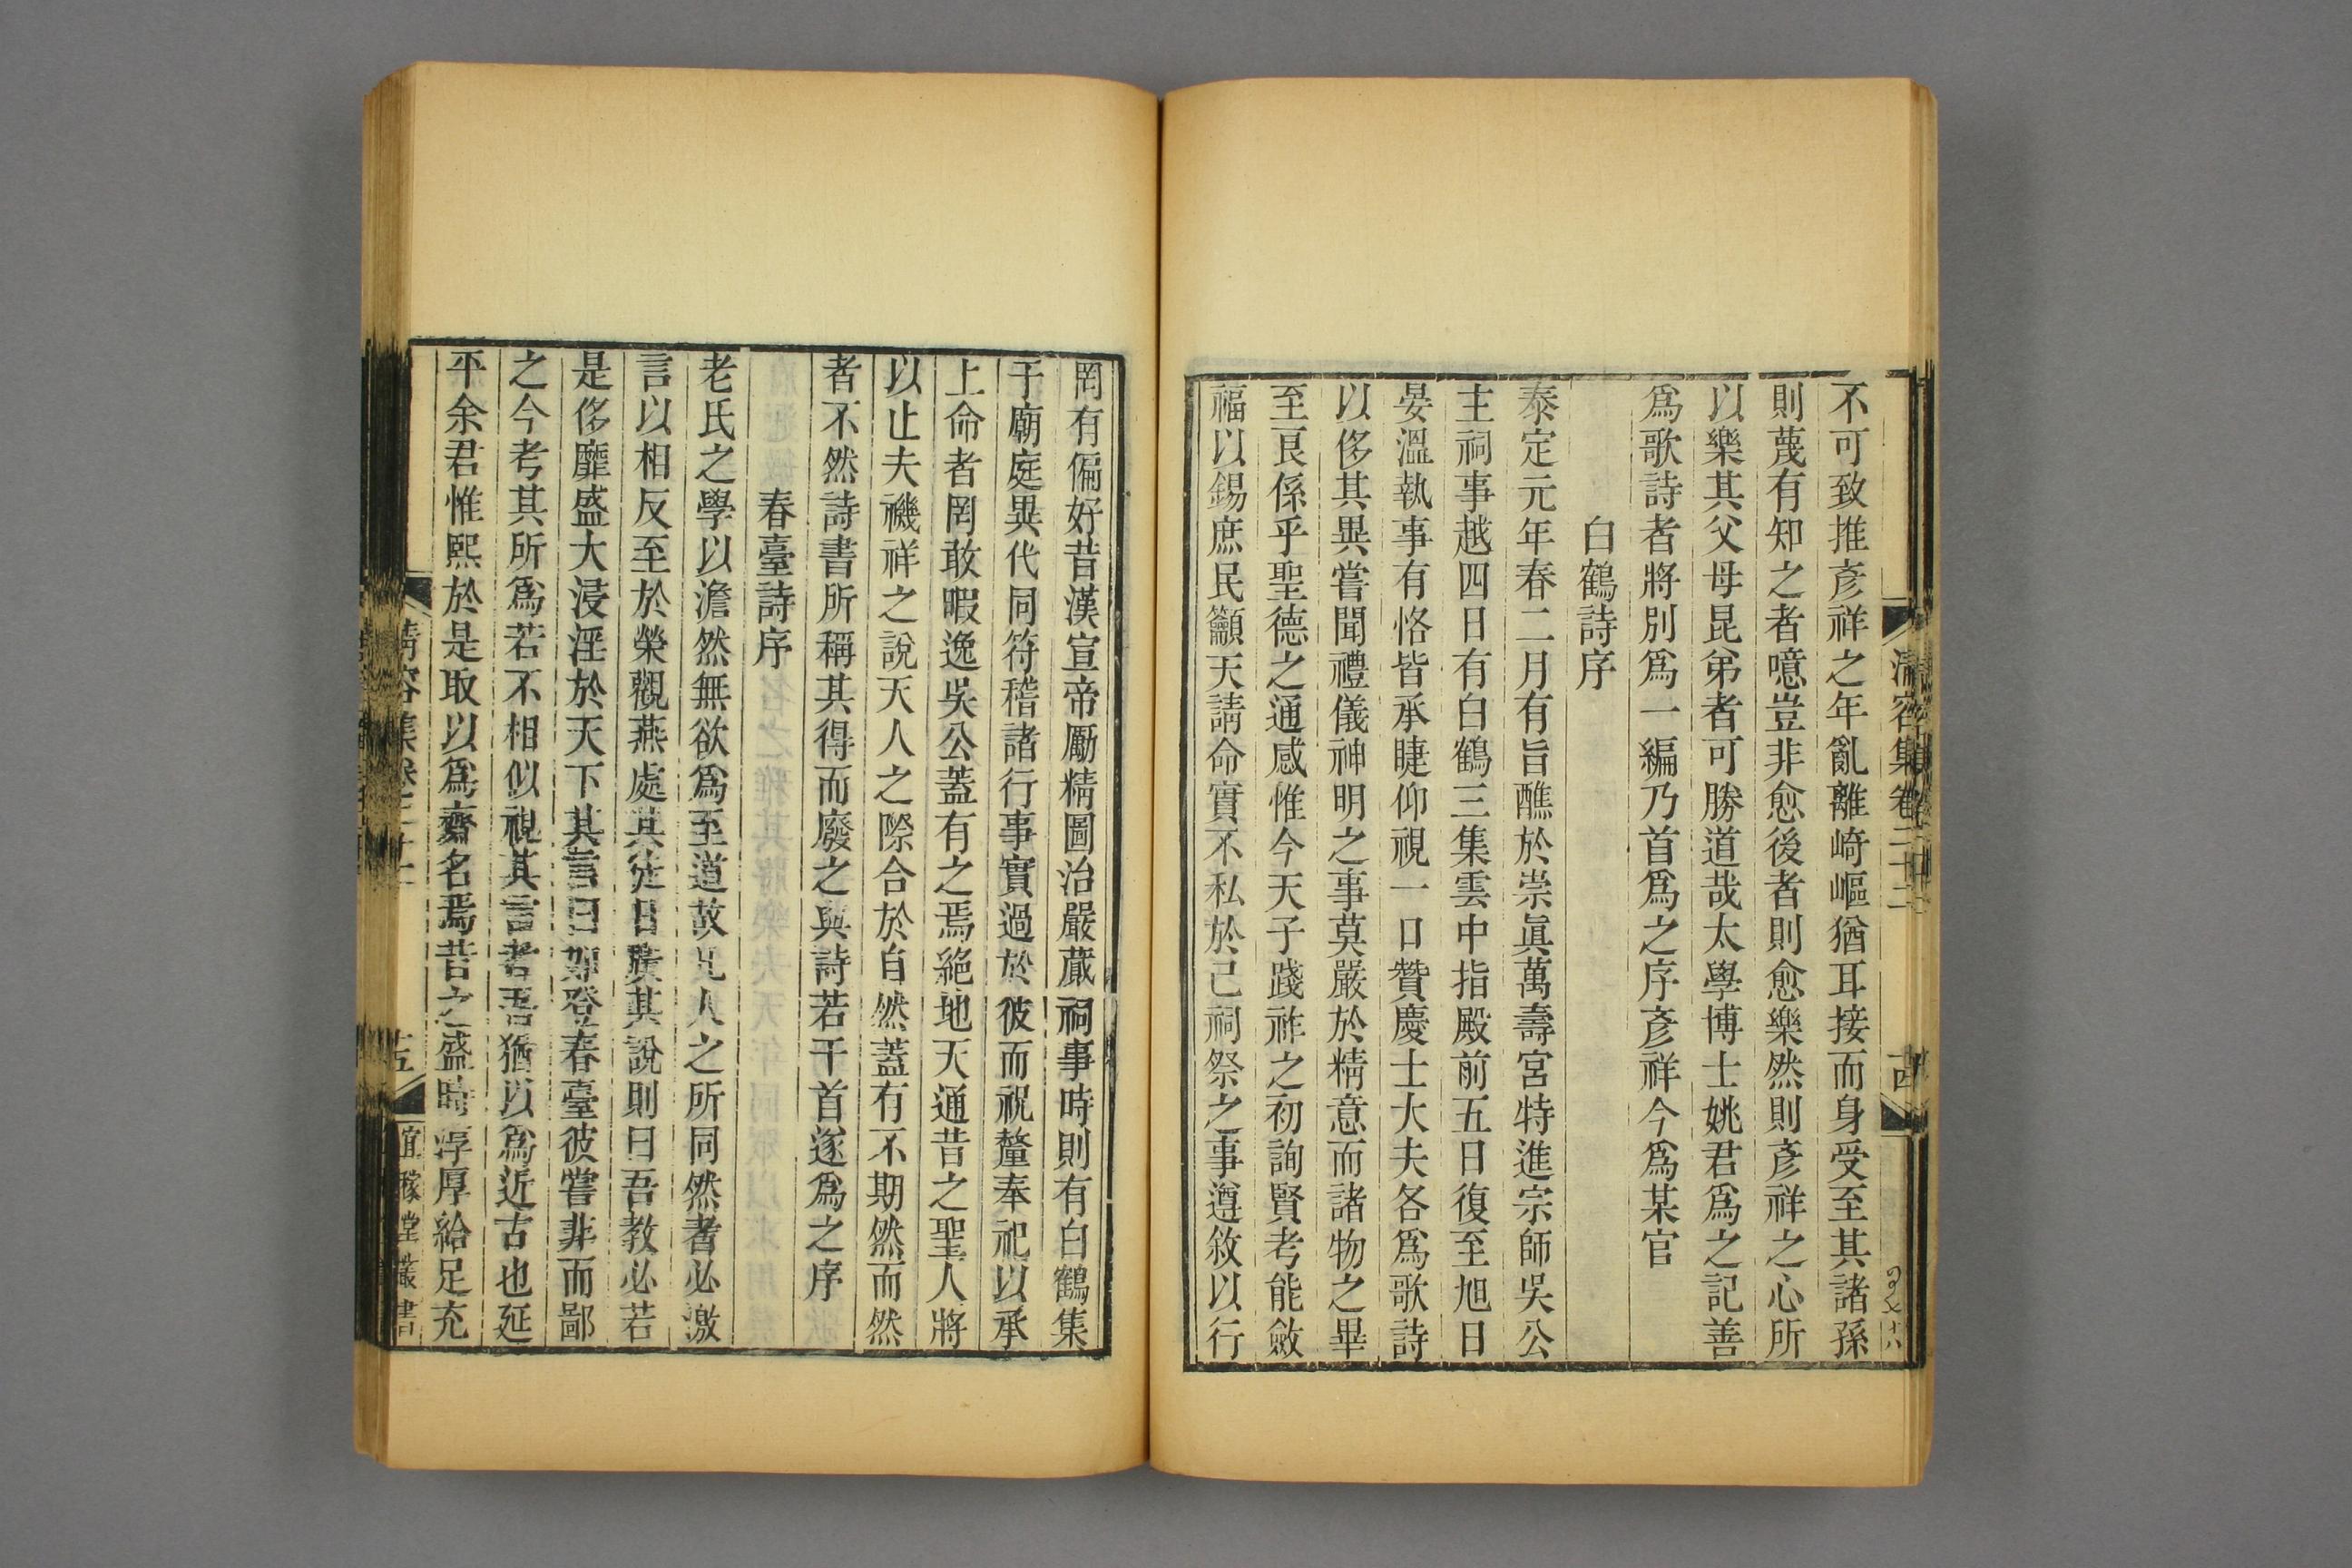 清容集卷二十二
十四
不可致推彥祥之年亂離崎嶇猶耳接而身受至其諸孫
則蔑有知之者噫豈非愈後者則愈樂然則彥祥之心所
以樂其父母昆弟者可勝道哉太學博士姚君爲之記善
爲歌詩者將別爲一編乃首爲之序彥祥今爲某官
白鶴詩序
泰定元年春二月有旨醮於崇眞萬壽宮特進宗師吳公
主祠事越四日有白鶴三集雲中指殿前五日復至旭日
晏溫執事有恪皆承睫仰視一口贊慶士大夫各爲歌詩
以侈其異嘗聞禮儀神明之事莫嚴於精意而諸物之畢
至艮係乎聖德之通感惟今天子踐祚之初詢賢考能斂
福以錫庶民籲天請命實不私於己祠祭之事遵敘以行
罔有偏好昔漢宣帝勵精圖治嚴蕆祠事時則有白鶴集
于廟庭異代同符稽諸行事實過於彼而祝釐奉祀以承
上命者罔敢暇逸吳公蓋有之焉絕地天通昔之聖人將
以止夫禨祥之說天人之際合於自然蓋有不期然而然
者不然詩書所稱其得而廢之與詩若干首遂爲之序
春臺詩序
老氏之學以澹然無欲爲至道故凡人之所同然者必激
言以相反至於榮觀燕處其徒日廣其說則曰吾教必若
是侈靡盛大浸淫於天下其言曰如登春臺彼嘗非而鄙
之今考其所爲若不相似視其言者吾猶以爲近古也延
平余君惟熙於是取以爲齋名焉昔之盛時淳厚給足充
清容集卷二十二
十五
宜稼堂叢書